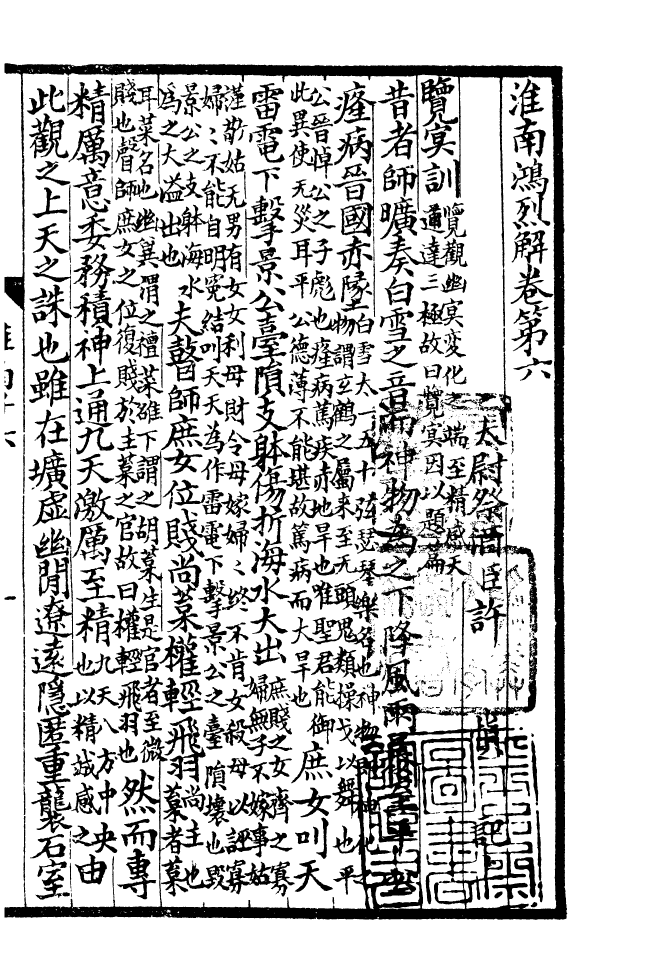 淮南鴻烈解卷第六
太尉祭酒臣許 慎 記上
覽冥訓 覽觀幽冥変化之端至精感天
通達三極故曰覽冥因以題篇
昔者師曠奏白雪之音而神物為之下降風雨暴至平公
癃病晉國赤地 白雪太一五十弦瑟琴樂名也神物即神化之
物謂玄鶴之屬来至无頭鬼類操戈以舞也平
公晉悼公之子彪也癃病篤疾赤地旱也唯聖君能御
此異使无災耳平公德薄不能堪故篤病而大旱也 庶女叫天
雷電下擊景公臺隕支躰傷折海水大出 庶賤之女齊之寡
婦無子不嫁事姑
謹敬姑无男有女女利母財令母嫁婦〻終不肯女殺母以誣寡
婦〻不能自明冤結叫天天為作雷電下擊景公之臺隕壞也毀
景公之支躰海水
為之大溢出也 夫瞽師庶女位賤尚菜權輕飛羽 尚主也
菜者菜
耳菜名也幽冀謂之襢菜雒下謂之胡菜生是官者至微
賤也瞽師庶女之位復賤於主菜之官故曰權輕飛羽也 然而專
精厲意委務積神上通九天激厲至精 九天八方中央
也以精誠感之 由
此觀之上天之誅也雖在壙虛幽閒遼遠隱匿重襲石室